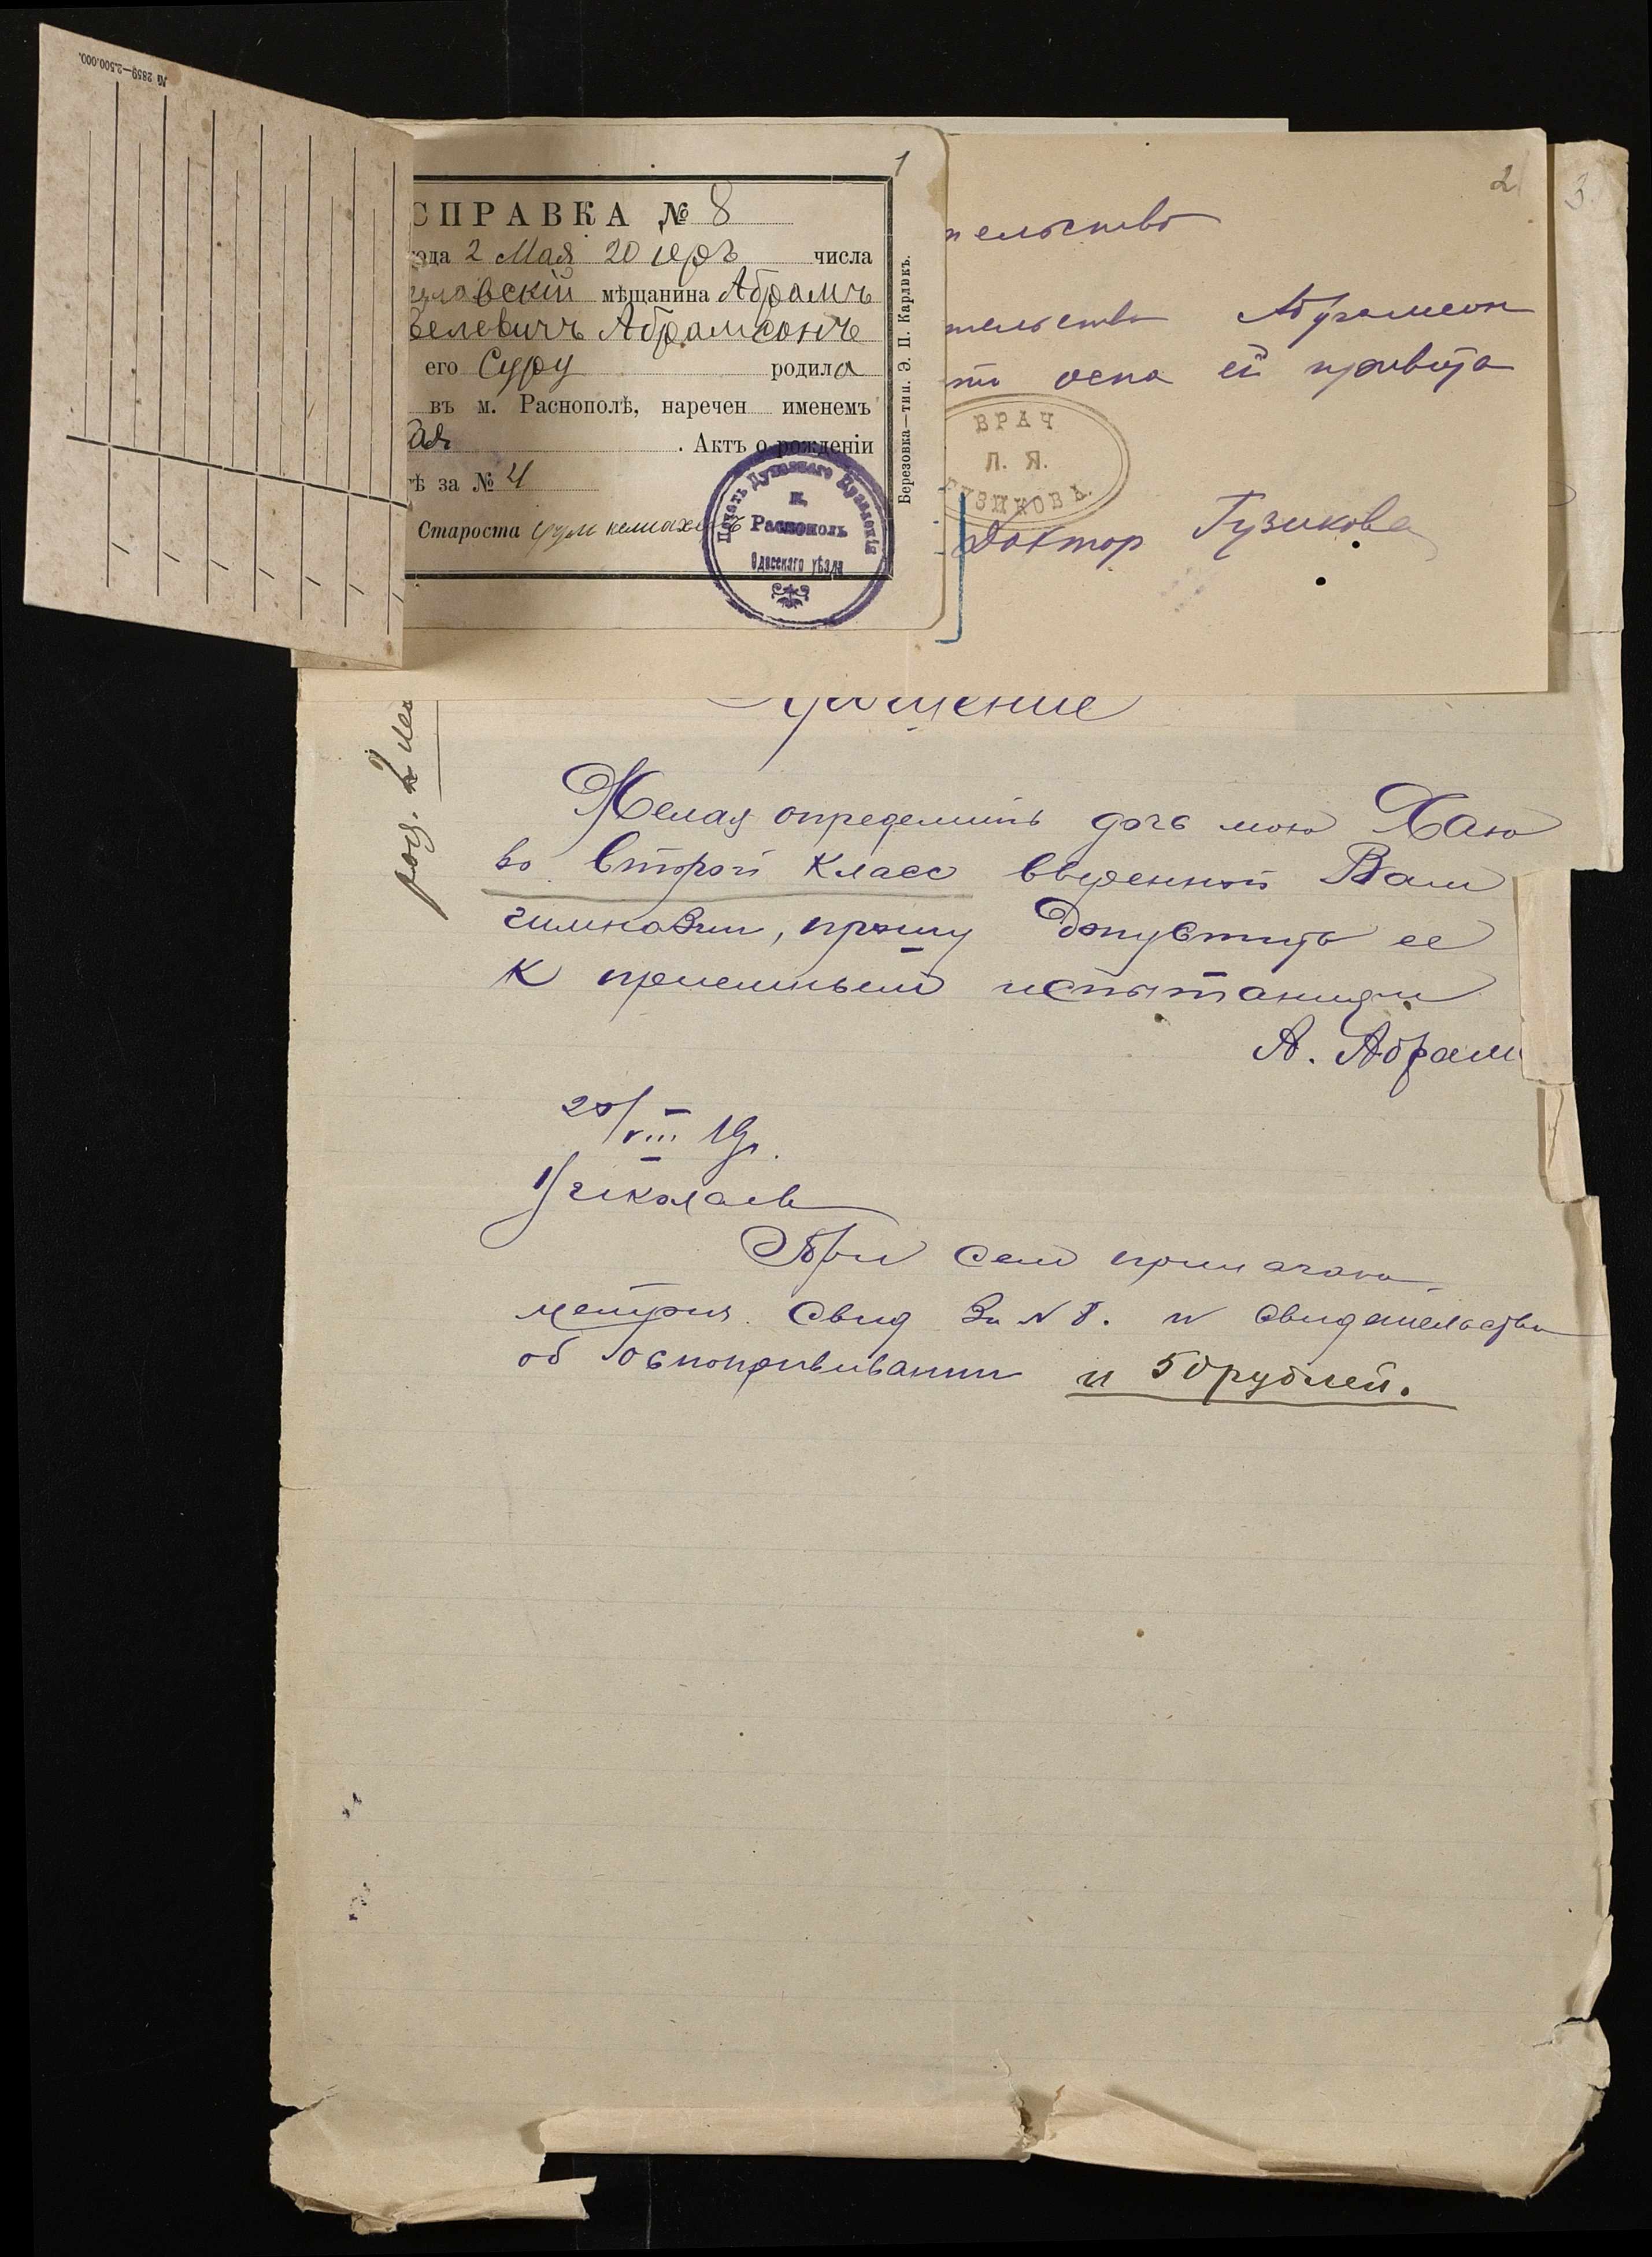 № 2859—2.500.000.
1
СПРАВКА № 8
года 2 Мая 20 іеръ числа
мѣщанина Абрамъ
Абрамсонъ
его Суру родила
въ м. Раснополѣ, наречен именемъ
. Актъ о рожденіи
за № 4
Староста
Печать Духовнаго Правленія
м.
Раснополь
Одесскаго уѣзда
Березовка—тип. Э. П. Карликъ.
2
3
тельство
тельство Абрамсон
что оспа ей привита
ВРАЧ
Л. Я.
ГУЗИКОВА.
Доктор Гузикова
Прошение
Желая определить дочь мою Хаю
во второй класс вверенной Вам
гимназии, прошу допустить ее
к приемным испытаниям
А. Абрам
20/VIII 19г.
Николаев
При сем прилагаю
метрич. свид за № 8. и свидетельство
об оспопрививании и 50 рублей.